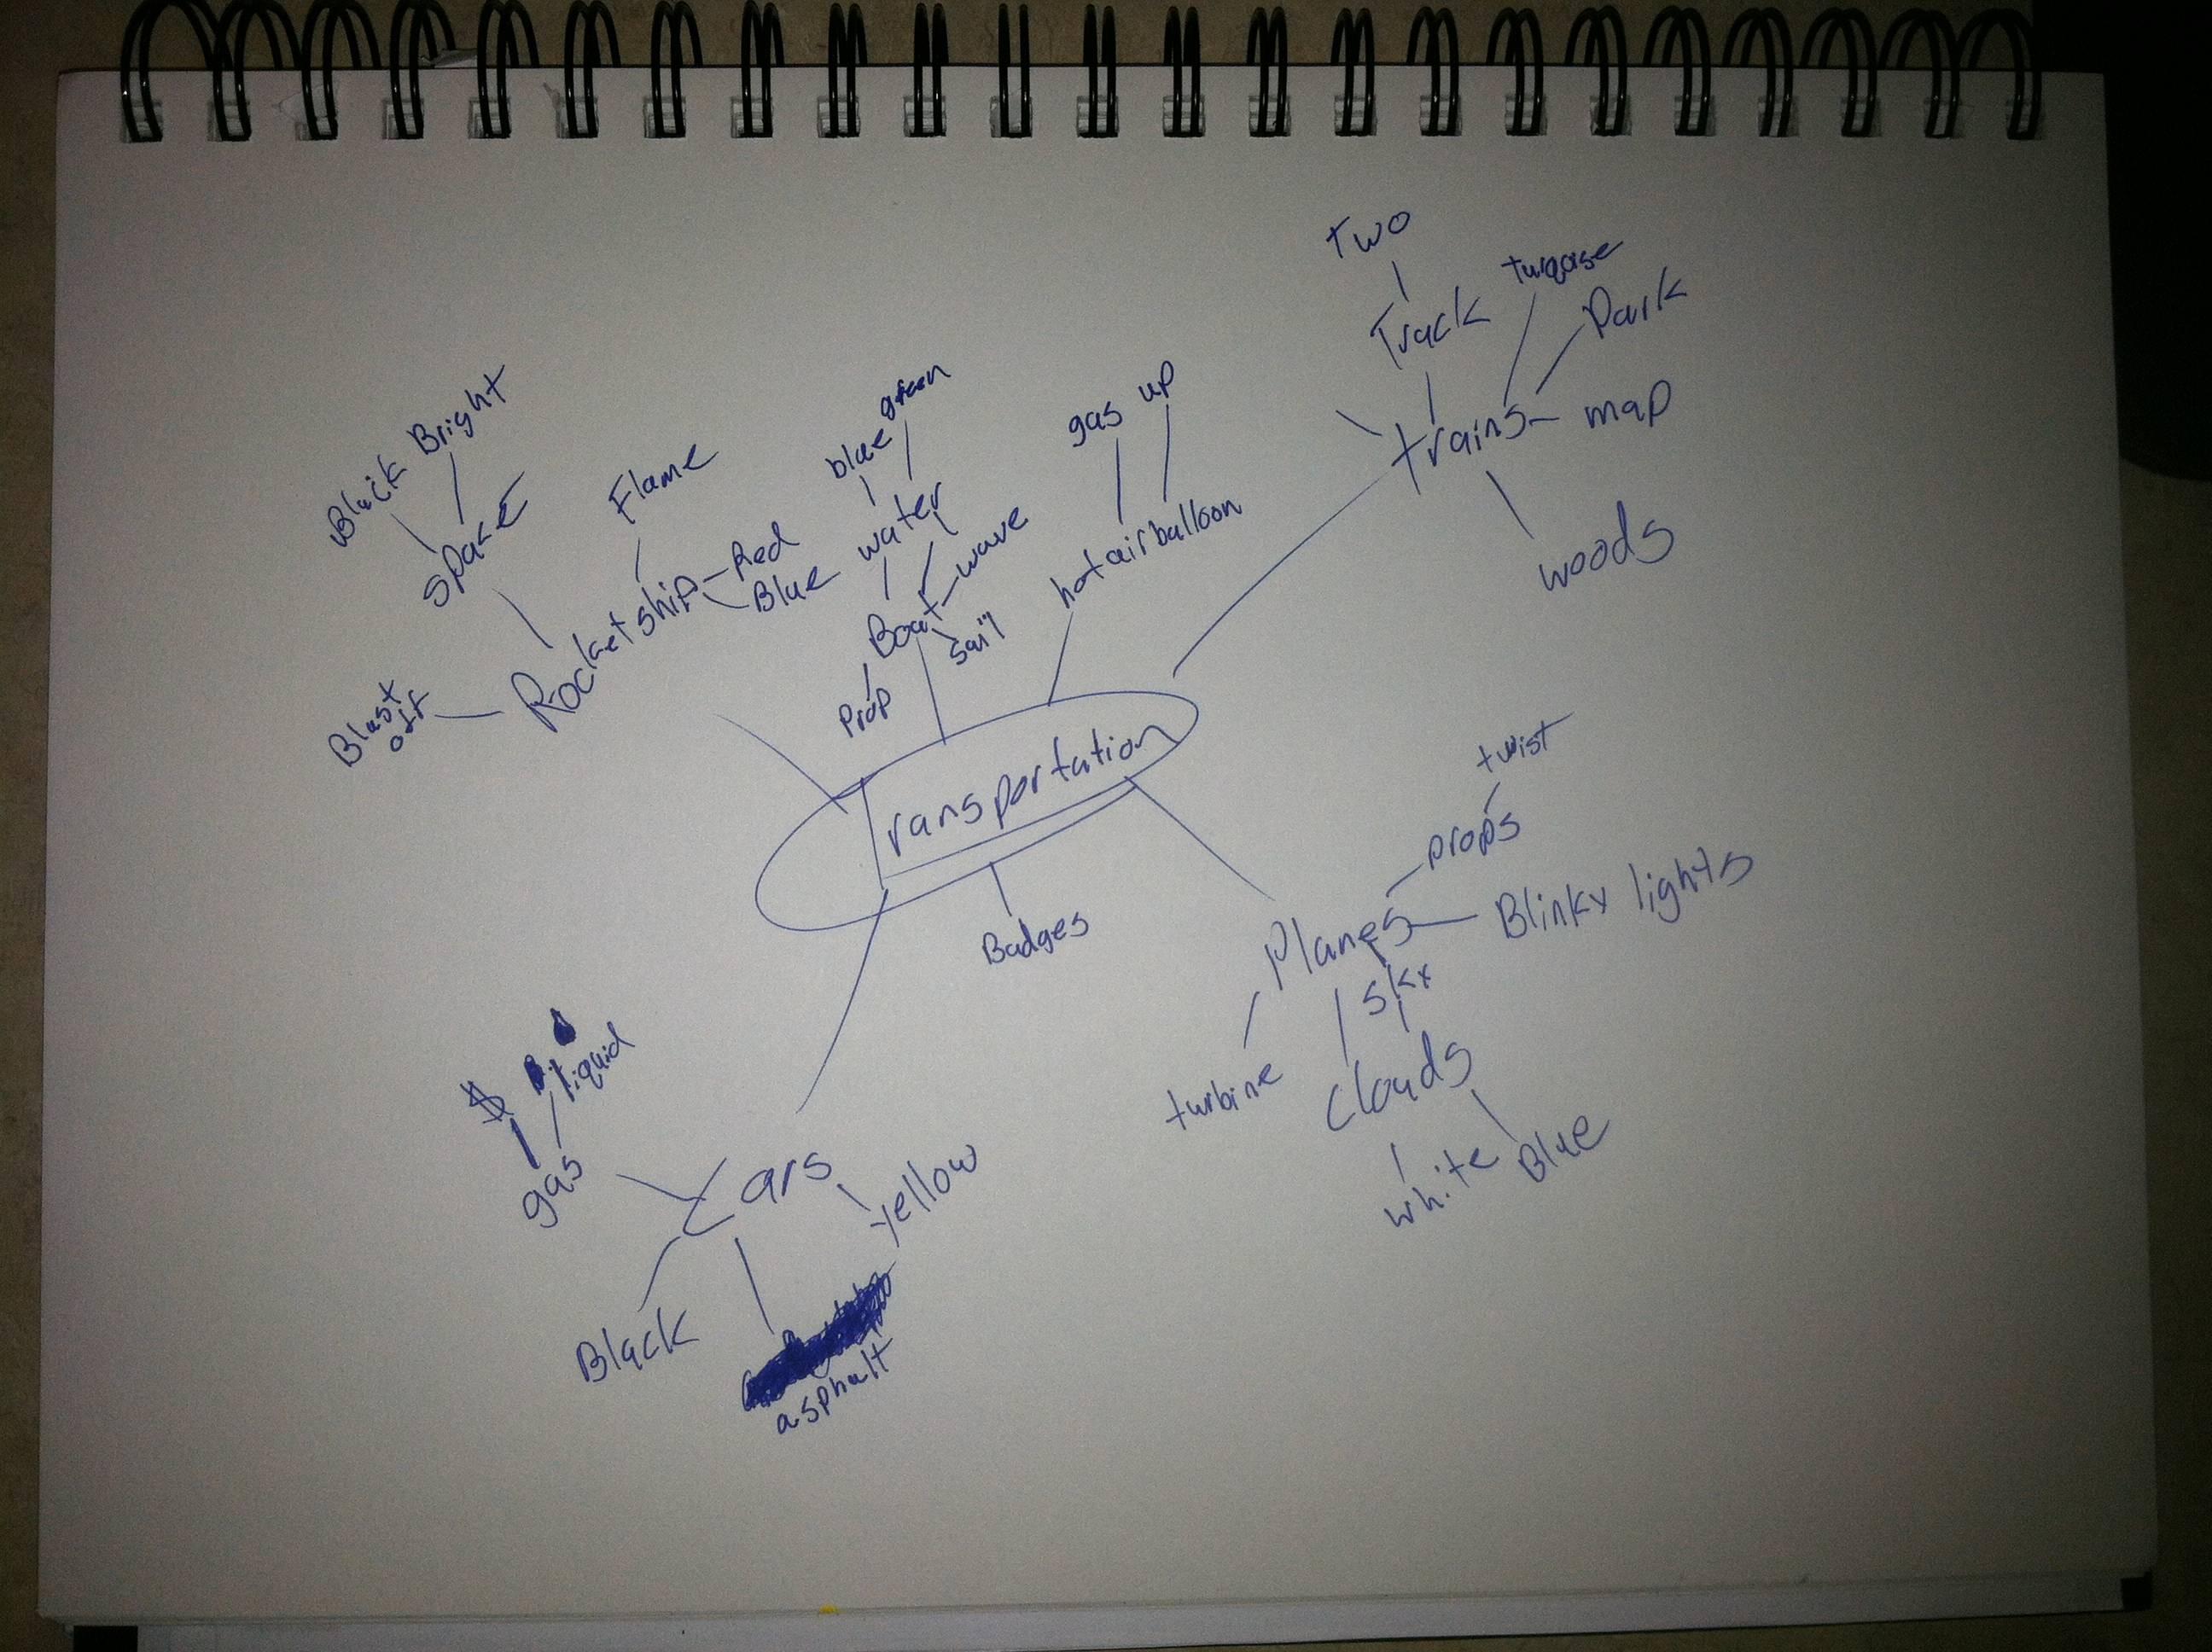 Two
Track
turqoise
Park
trains
map
woods
gas
up
hot air balloon
blue
green
water
Boat
wave
sail
Prop
Black
Bright
space
Flame
Rocket ship
Red
Blue
Blast
off
Transportation
Badges
twist
props
Planes
Blinky lights
sky
turbine
clouds
white
Blue
$
liquid
gas
Cars
yellow
Black
asphalt